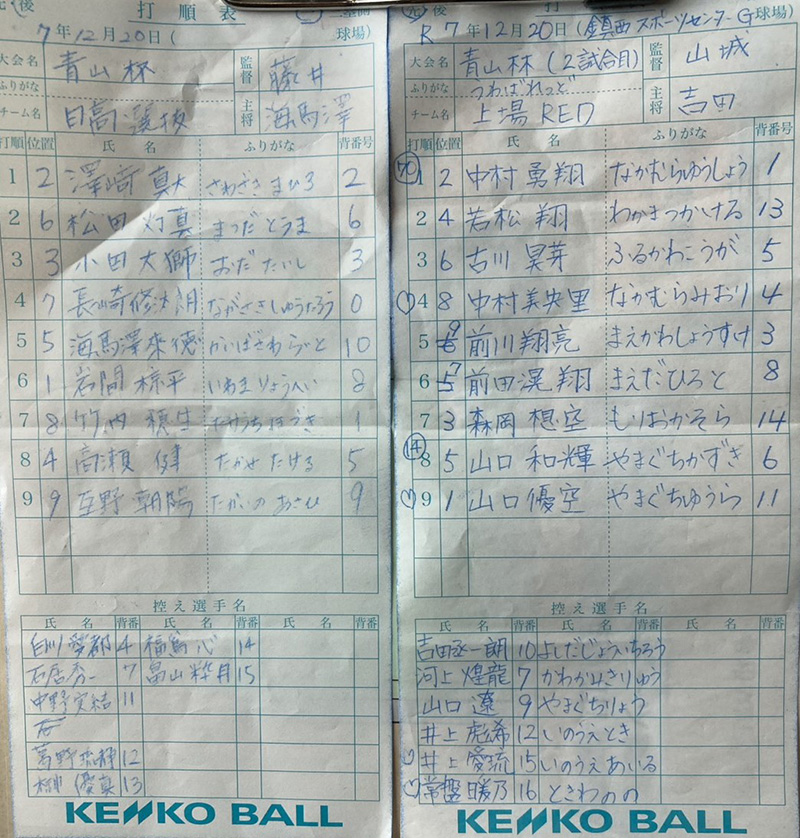 先 後 打順表
7年12月20日( 球場)
大会名 青山杯 監督 藤井
ふりがな
チーム名 日高選抜 主将 海馬澤
打順 位置 氏名 ふりがな 背番号
1 2 澤崎 真大 さわざき まひろ 2
2 6 松田 灯真 まつだ とうま 6
3 3 小田 大獅 おだ たいし 3
4 7 長崎修太朗 ながさきしゅうたろう 0
5 5 海馬澤來德 かいばざわ らいと 10
6 1 岩間 椋平 いわま りょうへい 8
7 8 竹内 穂生 たけうち ほづき 1
8 4 高瀬 健 たかせ たける 5
9 9 互野 朝陽 たがいの あさひ 9
控え選手名
氏名 背番 氏名 背番
白川 愛都 4 福島 心 14
石居 秀一 7 畠山 粋月 15
中野 実結 11
葛野 12
柳 優真 13
KENKO BALL
先 後 打
R7年12月20日(鎮西スポーツセンターG球場)
大会名 青山杯(2試合目) 監督 山城
ふりがな うわばれっど
チーム名 上場RED 主将 吉田
打順 位置 氏名 ふりがな 背番号
1 2 中村 勇翔 なかむらゆうしょう 1
2 4 若松 翔 わかまつかける 13
3 6 古川 昊芽 ふるかわこうが 5
4 8 中村美央里 なかむらみおり 4
5 9 前川翔亮 まえかわしょうすけ 3
6 7 前田滉翔 まえだひろと 8
7 3 森岡 想空 もりおかそら 14
⑭
8 5 山口 和輝 やまぐちかずき 6
9 1 山口優空 やまぐちゆうら 11
控え選手名
氏名 背番 氏名 背番
吉田丞一朗 10 よしだじょういちろう
河上 煌龍 7 かわかみきりゅう
山口 遼 9 やまぐちりょう
井上 彪希 12 いのうえとき
井上 愛琉 15 いのうえあいる
常盤暖乃 16 ときわのの
KENKO BALL